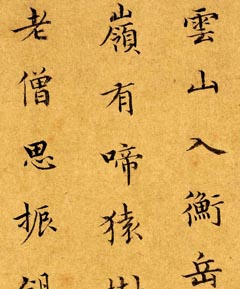 雲山入衡岳
嶺有啼猿
老僧思振錫